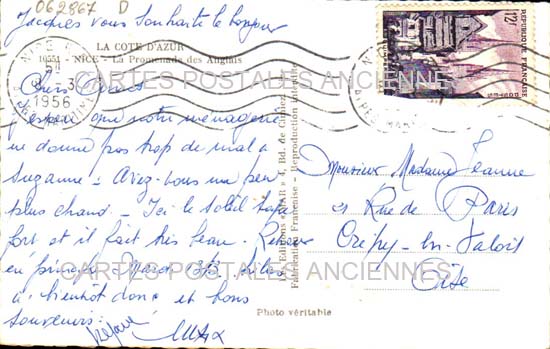 062867 D
Jacques vous souhaite le bonjour
LA COTE D'AZUR
10551 - NICE - La Promenade des Anglais
NICE
1956
Chers Amis
J'espère que notre ménagerie
ne donne pas trop de mal à
Suzanne - Avez-vous un peu
plus chaud - Ici le soleil tape
fort et il fait très beau -
en principe Mardi
à bientôt donc et bons
souvenirs
Les Editions "MAR"
Fabrication Française - Reproduction interdite
Photo véritable
12F
REPUBLIQUE FRANÇAISE
POSTES
Monsieur Madame Jeanne
21 Rue de Paris
Crépy-en-Valois
Oise
CARTES POSTALES ANCIENNES
CARTES POSTALES ANCIENNES